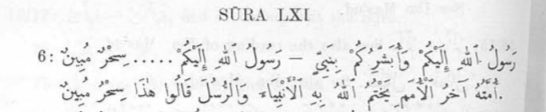 SŪRA LXI
6: رَسُولُ ٱللّٰهِ إِلَيْكُمْ وَأُبَشِّرُكُمْ بِنَبِيٍّ — رَسُولُ ٱللّٰهِ إِلَيْكُمْ ..... سِحْرٌ مُبِينٌ
أُمَّتُهُ آخِرُ ٱلْأُمَمِ يَخْتِمُ ٱللّٰهُ بِهِ ٱلْأَنْبِيَاءَ وَٱلرُّسُلَ قَالُوا هٰذَا سِحْرٌ مُبِينٌ.